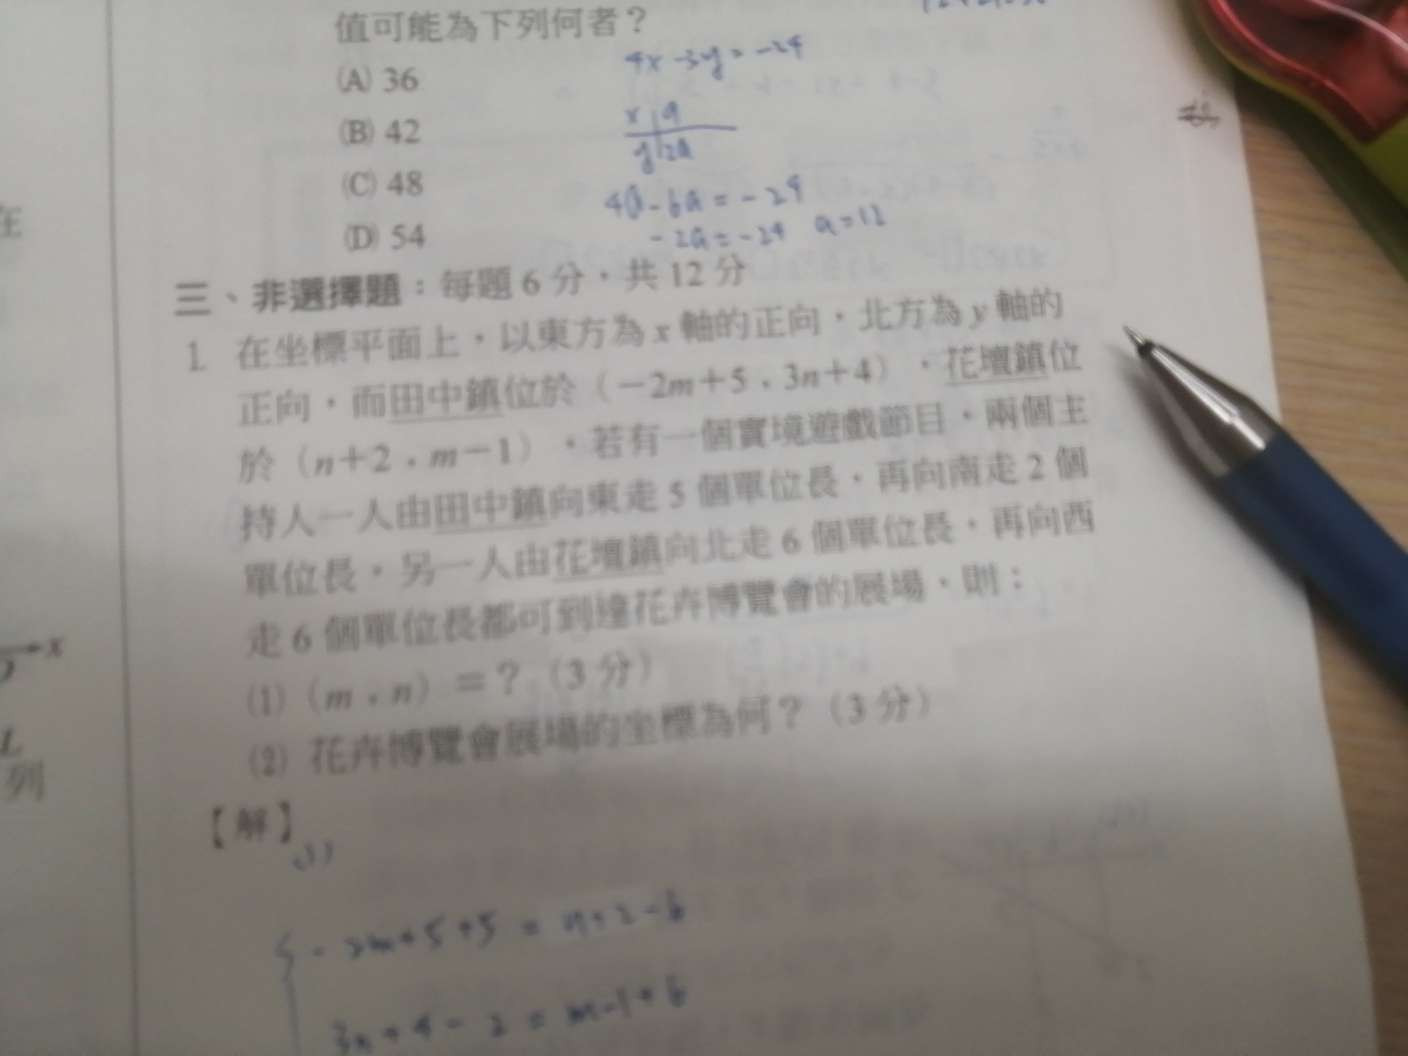 值可能為下列何者？
(A) 36
(B) 42
(C) 48
(D) 54
4x-3y=-24
x a
y 2a
4a-6a=-24
-2a=-24 a=12
三、非選擇題：每題6分，共12分
1. 在坐標平面上，以東方為x軸的正向，北方為y軸的
正向，而田中鎮位於（-2m+5，3n+4），花壇鎮位
於（n+2，m-1），若有一個實境遊戲節目，兩個主
持人一人由田中鎮向東走5個單位長，再向南走2個
單位長，另一人由花壇鎮向北走6個單位長，再向西
走6個單位長都可到達花卉博覽會的展場，則：
(1)（m，n）=？（3分）
(2) 花卉博覽會展場的坐標為何？（3分）
【解】
(1)
-2m+5+5=n+2-6
3n+4-2=m-1+6
在
x
L
列